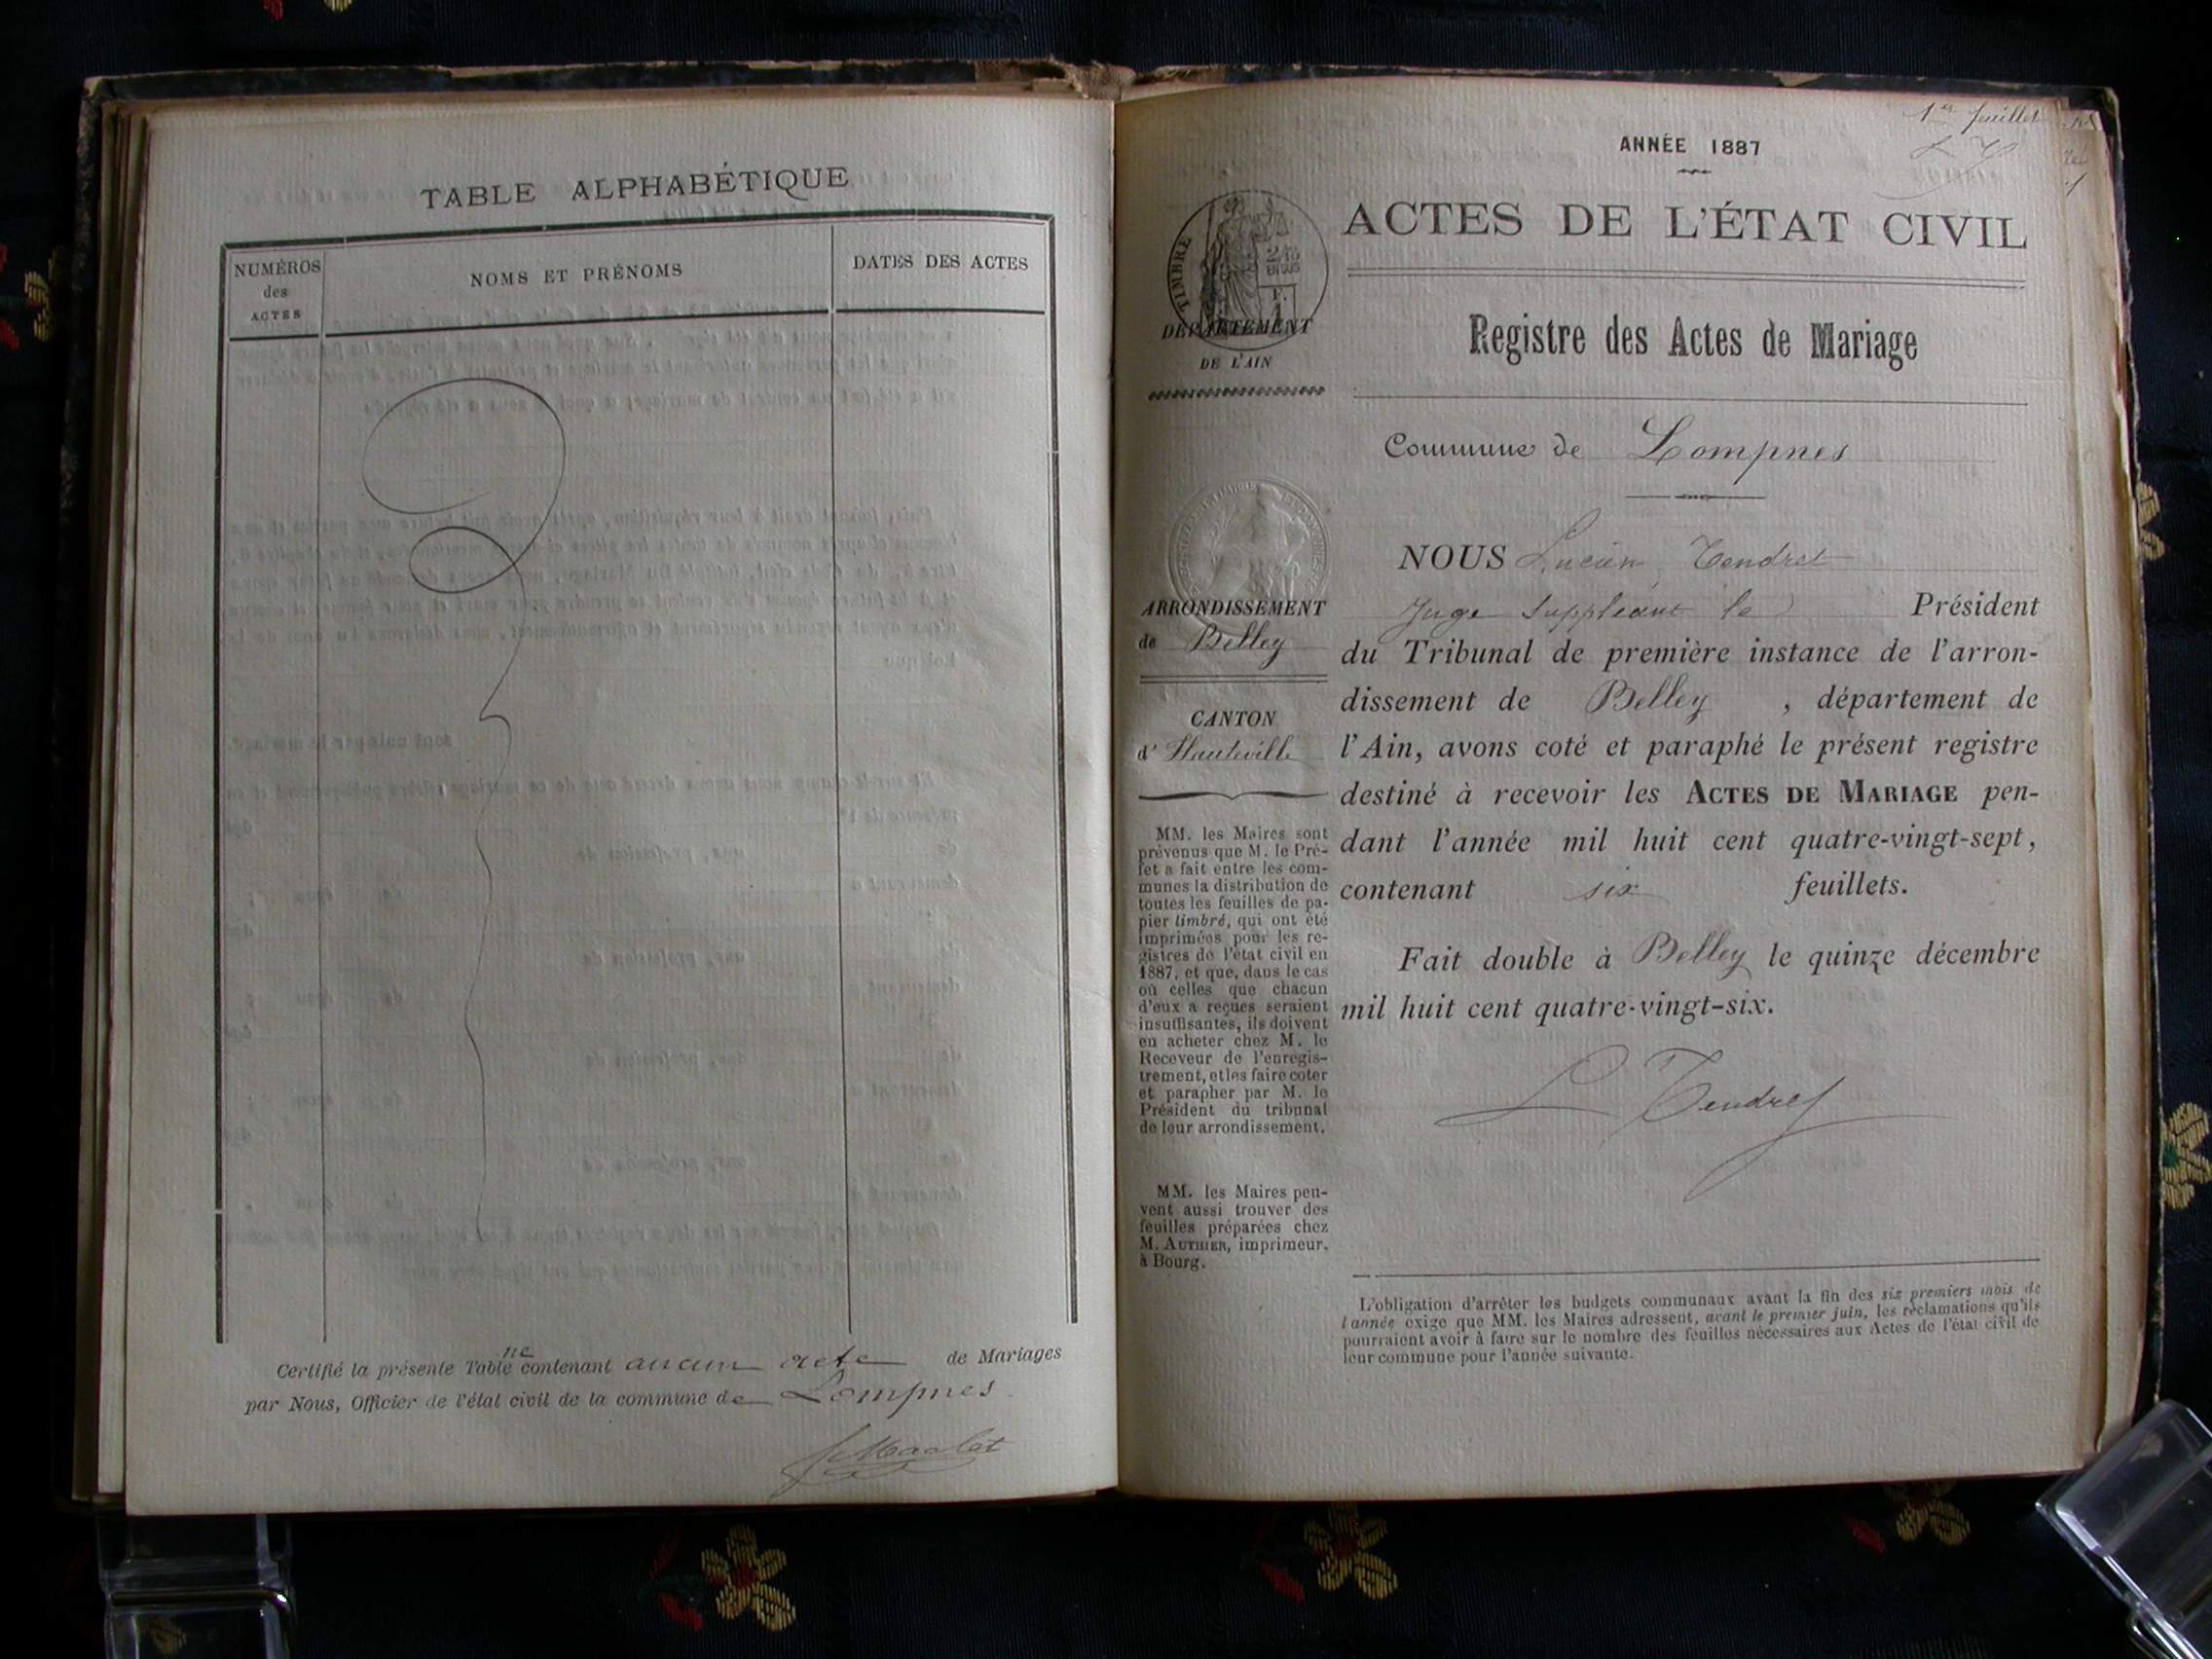 TABLE ALPHABÉTIQUE
NUMÉROS
des
ACTES
NOMS ET PRÉNOMS
DATES DES ACTES
Certifié la présente Table ne contenant aucun acte de Mariages
par Nous, Officier de l'état civil de la commune de Lompnes
1er feuillet
ANNÉE 1887
ACTES DE L'ÉTAT CIVIL
Registre des Actes de Mariage
Commune de Lompnes
TIMBRE
DÉPARTEMENT
DE L'AIN
ARRONDISSEMENT
de Belley
CANTON
d'Hauteville
MM. les Maires sont
prévenus que M. le Pré-
fet a fait entre les com-
munes la distribution de
toutes les feuilles de pa-
pier timbré, qui ont été
imprimées pour les re-
gistres de l'état civil en
1887, et que, dans le cas
où celles que chacun
d'eux a reçues seraient
insuffisantes, ils doivent
en acheter chez M. le
Receveur de l'enregis-
trement, et les faire coter
et parapher par M. le
Président du tribunal
de leur arrondissement.
MM. les Maires peu-
vent aussi trouver des
feuilles préparées chez
M. AUTHIER, imprimeur,
à Bourg.
NOUS Lucien Tendret
Juge Suppléant le Président
du Tribunal de première instance de l'arron-
dissement de Belley , département de
l'Ain, avons coté et paraphé le présent registre
destiné à recevoir les ACTES DE MARIAGE pen-
dant l'année mil huit cent quatre-vingt-sept,
contenant six feuillets.
Fait double à Belley le quinze décembre
mil huit cent quatre-vingt-six.
L Tendret
L'obligation d'arrêter les budgets communaux avant la fin des six premiers mois de
l'année exige que MM. les Maires adressent, avant le premier juin, les réclamations qu'ils
pourraient avoir à faire sur le nombre des feuilles nécessaires aux Actes de l'état civil de
leur commune pour l'année suivante.